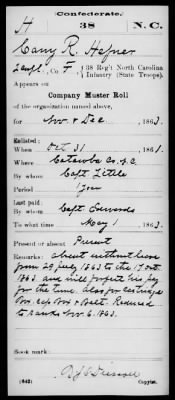 (Confederate.)
H 38 N.C.
Cany R. Hefner
Sergt., Co. F, 38 Reg't North Carolina
Infantry (State Troops).
Appears on
Company Muster Roll
of the organization named above,
for Nov & Dec, 1863.
Enlisted:
When Oct 31, 1861.
Where Catawba Co. N.C.
By whom Capt Little
Period 1 year
Last paid:
By whom Capt Edwards
To what time May 1, 1863.
Present or absent Present
Remarks: absent without leave
from 29 July 1863 to the 17 Oct.
1863 and will forfeit his pay
for the time. Also for Cartridge
Box, Cap Box & Belt. Reduced
to ranks Nov 6. 1863.
Book mark:
(642) Copyist.